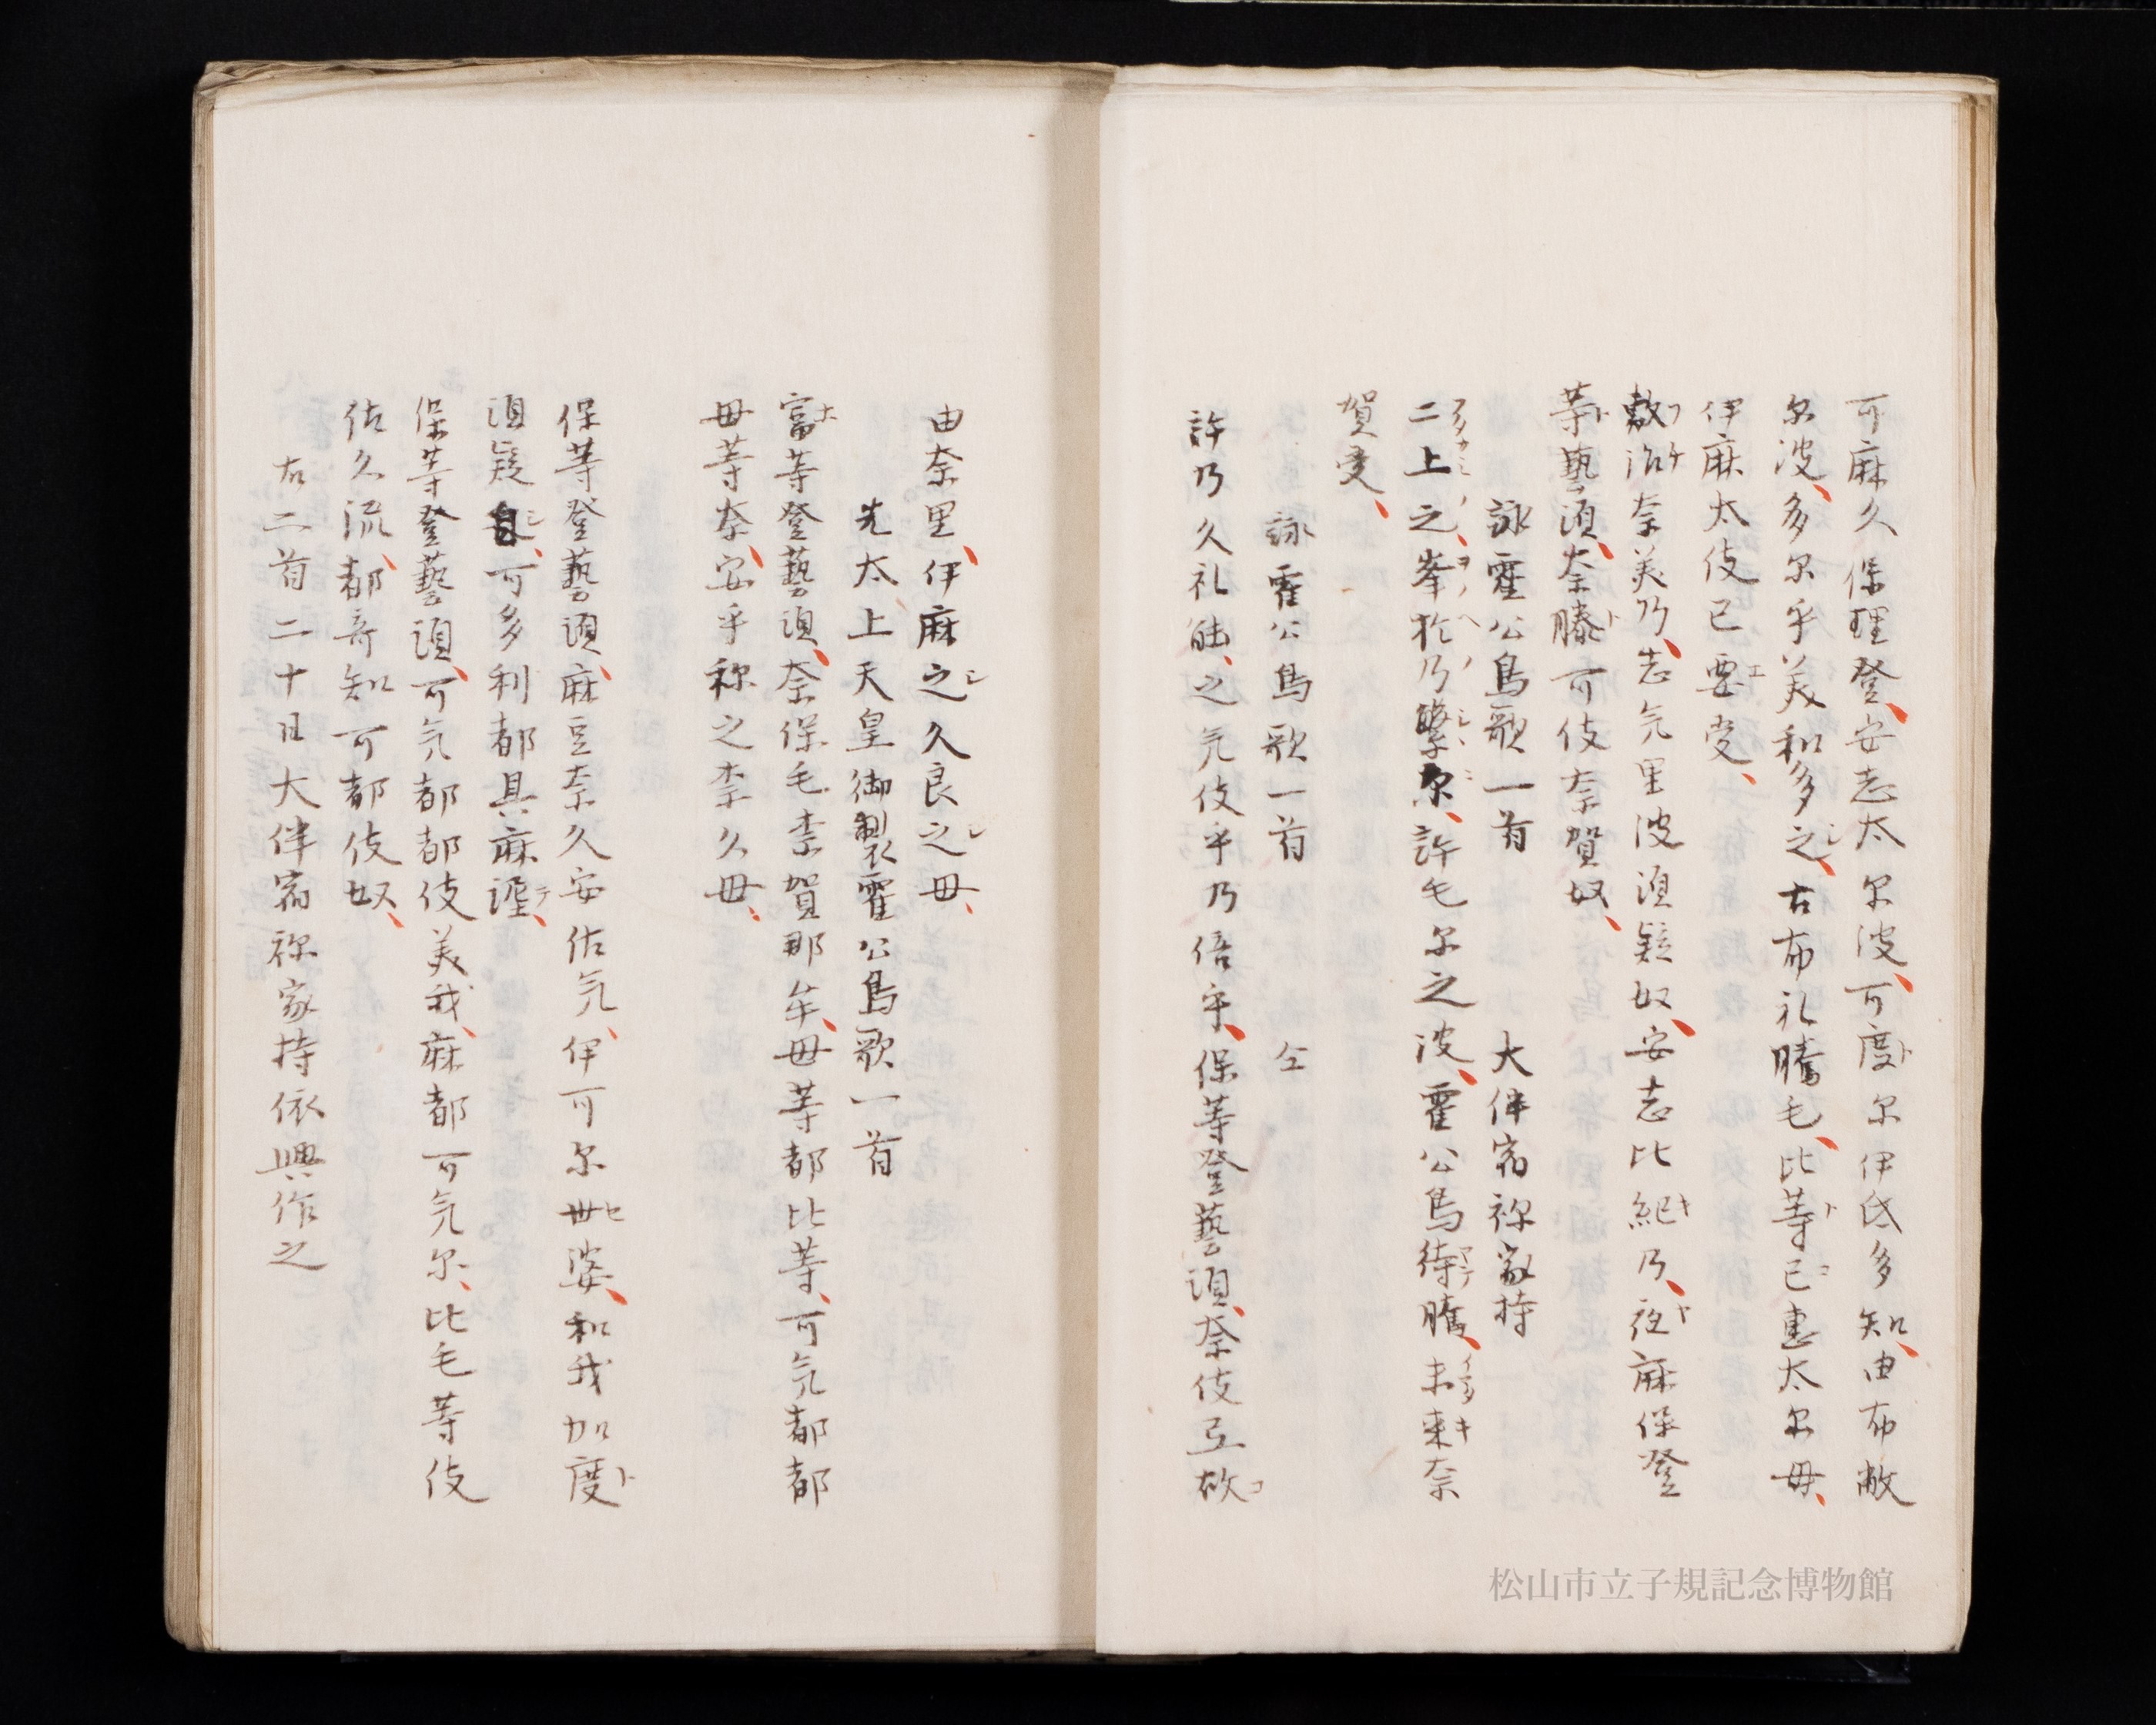 可麻久保理登、安志太尓波、可度尓伊氐多知、由布敝
尓波、多尓乎美和多之、古布礼騰毛、比等己恵太尓母、
伊麻太伎己要受、
敷治奈美乃、志気里波須疑奴、安志比紀乃、夜麻保登
等藝須、奈騰可伎奈賀奴、
詠霍公鳥歌一首　大伴宿祢家持
二上之、峯於乃繁尓、許毛尓之波、霍公鳥待騰、未来奈
賀受、
詠霍公鳥歌一首　仝
許乃久礼能、之気伎乎乃倍乎、保等登藝須、奈伎弖故
由奈里、伊麻之久良之母、
先太上天皇御製霍公鳥歌一首
富等登藝須、奈保毛奈賀那牟、母等都比等、可気都都
母等奈、安乎祢之奈久母、
保等登藝須、麻豆奈久安佐気、伊可尓世婆、和我加度
須疑自、可多利都具麻埿、
保等登藝須、可気都都伎美我、麻都可気尓、比毛等伎
佐久流、都奇知可都伎奴、
右二首二十日大伴宿祢家持依興作之
松山市立子規記念博物館